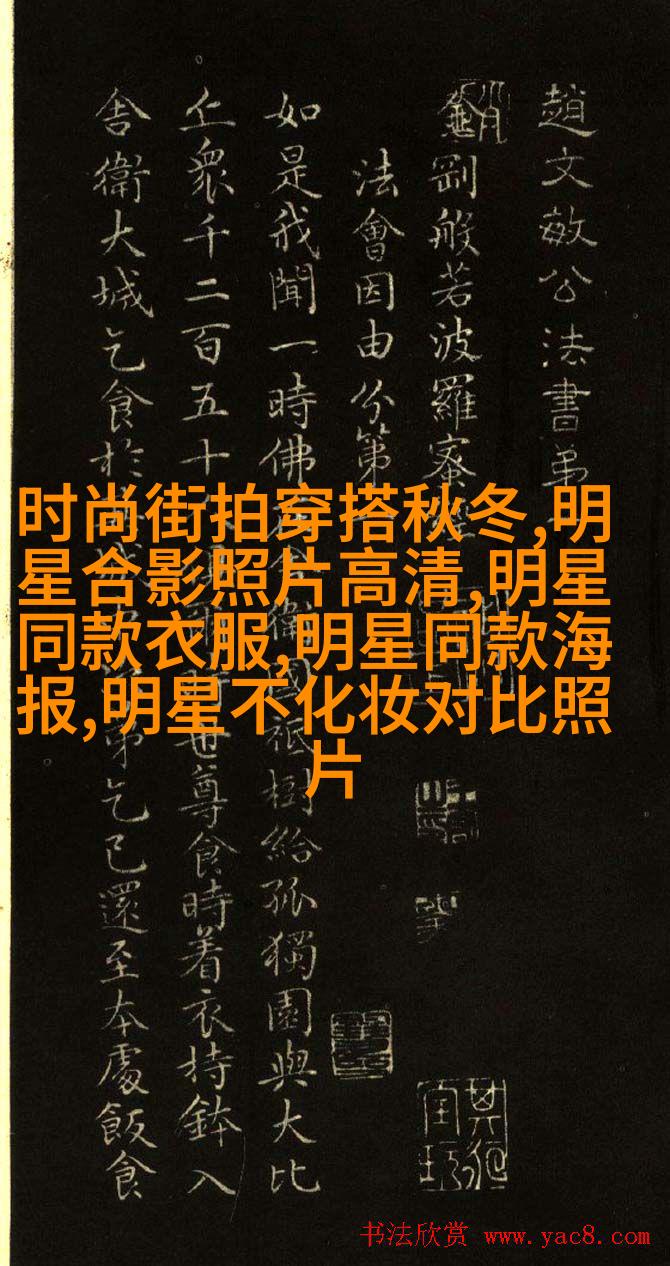 趙文敏公法書弟
金剛般若波羅蜜經
法會因由分第
如是我聞一時佛在舍衛國祇樹給孤獨園與大比
丘眾千二百五十世尊食時着衣持鉢入
舍衛大城乞食於其弟乞已還至本處飯食
时尚街拍穿搭秋冬,明
星合影照片高清,明星
同款衣服,明星同款海
报,明星不化妆对比照
片
书法欣赏 www.yac8.com